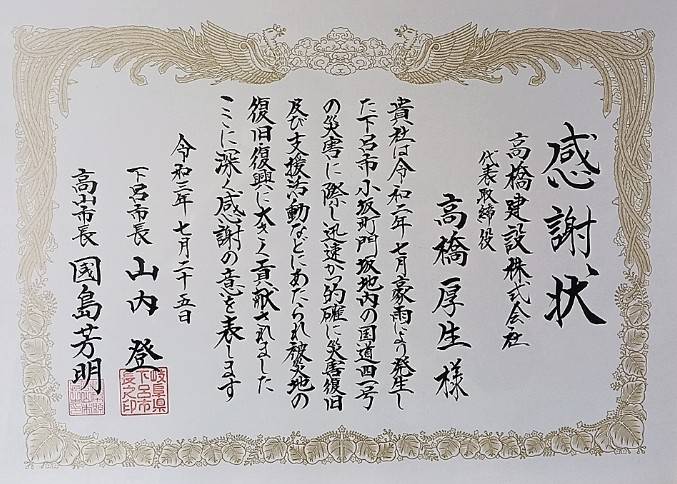 感謝状
高橋建設株式会社
代表取締役
高橋厚生様
貴社は令和二年七月豪雨により発生し
た下呂市小坂町門坂地内の国道四一号
の災害に際し迅速かつ的確に災害復旧
及び支援活動などにあたられ被災地の
復旧復興に大きく貢献されました
ここに深く感謝の意を表します
令和三年七月二十五日
下呂市長 山内登
高山市長 國島芳明
岐阜県
下呂市
長之印